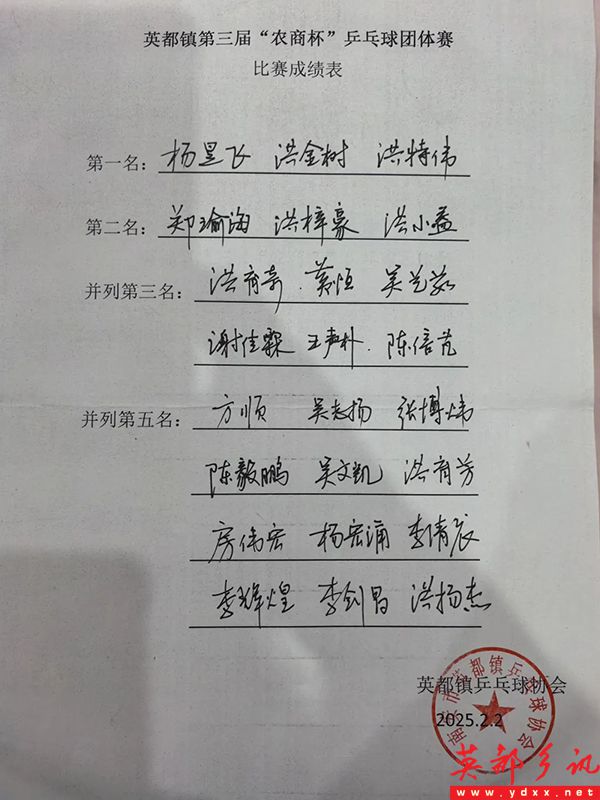 英都镇第三届“农商杯”乒乓球团体赛
比赛成绩表
第一名：杨昱飞 洪金树 洪特伟
第二名：郑瑜海 洪梓豪 洪小益
并列第三名：洪育奇 黄恒 吴艺
谢佳霖 王声朴 陈信
并列第五名：方顺 吴志扬 张博炜
陈毅鹏 吴文凯 洪育芳
房伟宏 杨宏涌 李倩
李辉煌 李剑昌 洪扬杰
英都镇乒乓球协会
2025.2.2
南安市英都镇乒乓球协会
英都乡讯
www.ydxx.net